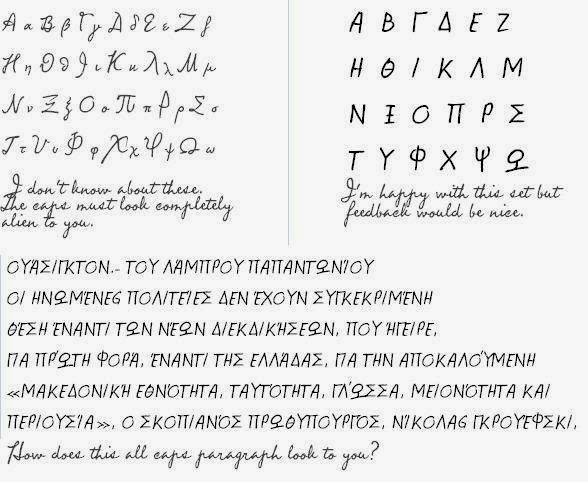 Α α Β β Γ γ Δ δ Ε ε Ζ ζ
Η η Θ θ Ι ι Κ κ Λ λ Μ μ
Ν ν Ξ ξ Ο ο Π π Ρ ρ Σ σ
Τ τ Υ υ Φ φ Χ χ Ψ ψ Ω ω
I don't know about these.
The caps must look completely
alien to you.
Α Β Γ Δ Ε Ζ
Η Θ Ι Κ Λ Μ
Ν Ξ Ο Π Ρ Σ
Τ Υ Φ Χ Ψ Ω
I'm happy with this set but
feedback would be nice.
ΟΥΆΣΙΓΚΤΟΝ.- ΤΟΥ ΛΆΜΠΡΟΥ ΠΑΠΑΝΤΩΝΊΟΥ
ΟΙ ΗΝΩΜΈΝΕς ΠΟΛΙΤΕΊΕΣ ΔΕΝ ΈΧΟΥΝ ΣΥΓΚΕΚΡΙΜΈΝΗ
ΘΈΣΗ ΈΝΑΝΤΙ ΤΩΝ ΝΈΩΝ ΔΙΕΚΔΙΚΉΣΕΩΝ, ΠΟΥ ΉΓΕΙΡΕ,
ΓΙΑ ΠΡΏΤΗ ΦΟΡΆ, ΈΝΑΝΤΙ ΤΗΣ ΕΛΛΆΔΑΣ, ΓΙΑ ΤΗΝ ΑΠΟΚΑΛΟΎΜΕΝΗ
«ΜΑΚΕΔΟΝΙΚΉ ΕΘΝΌΤΗΤΑ, ΤΑΥΤΌΤΗΤΑ, ΓΛΏΣΣΑ, ΜΕΙΟΝΌΤΗΤΑ ΚΑΙ
ΠΕΡΙΟΥΣΊΑ», Ο ΣΚΟΠΙΑΝΌΣ ΠΡΩΘΥΠΟΥΡΓΌΣ, ΝΊΚΟΛΑς ΓΚΡΟΥΈΦΣΚΙ,
How does this all caps paragraph look to you?